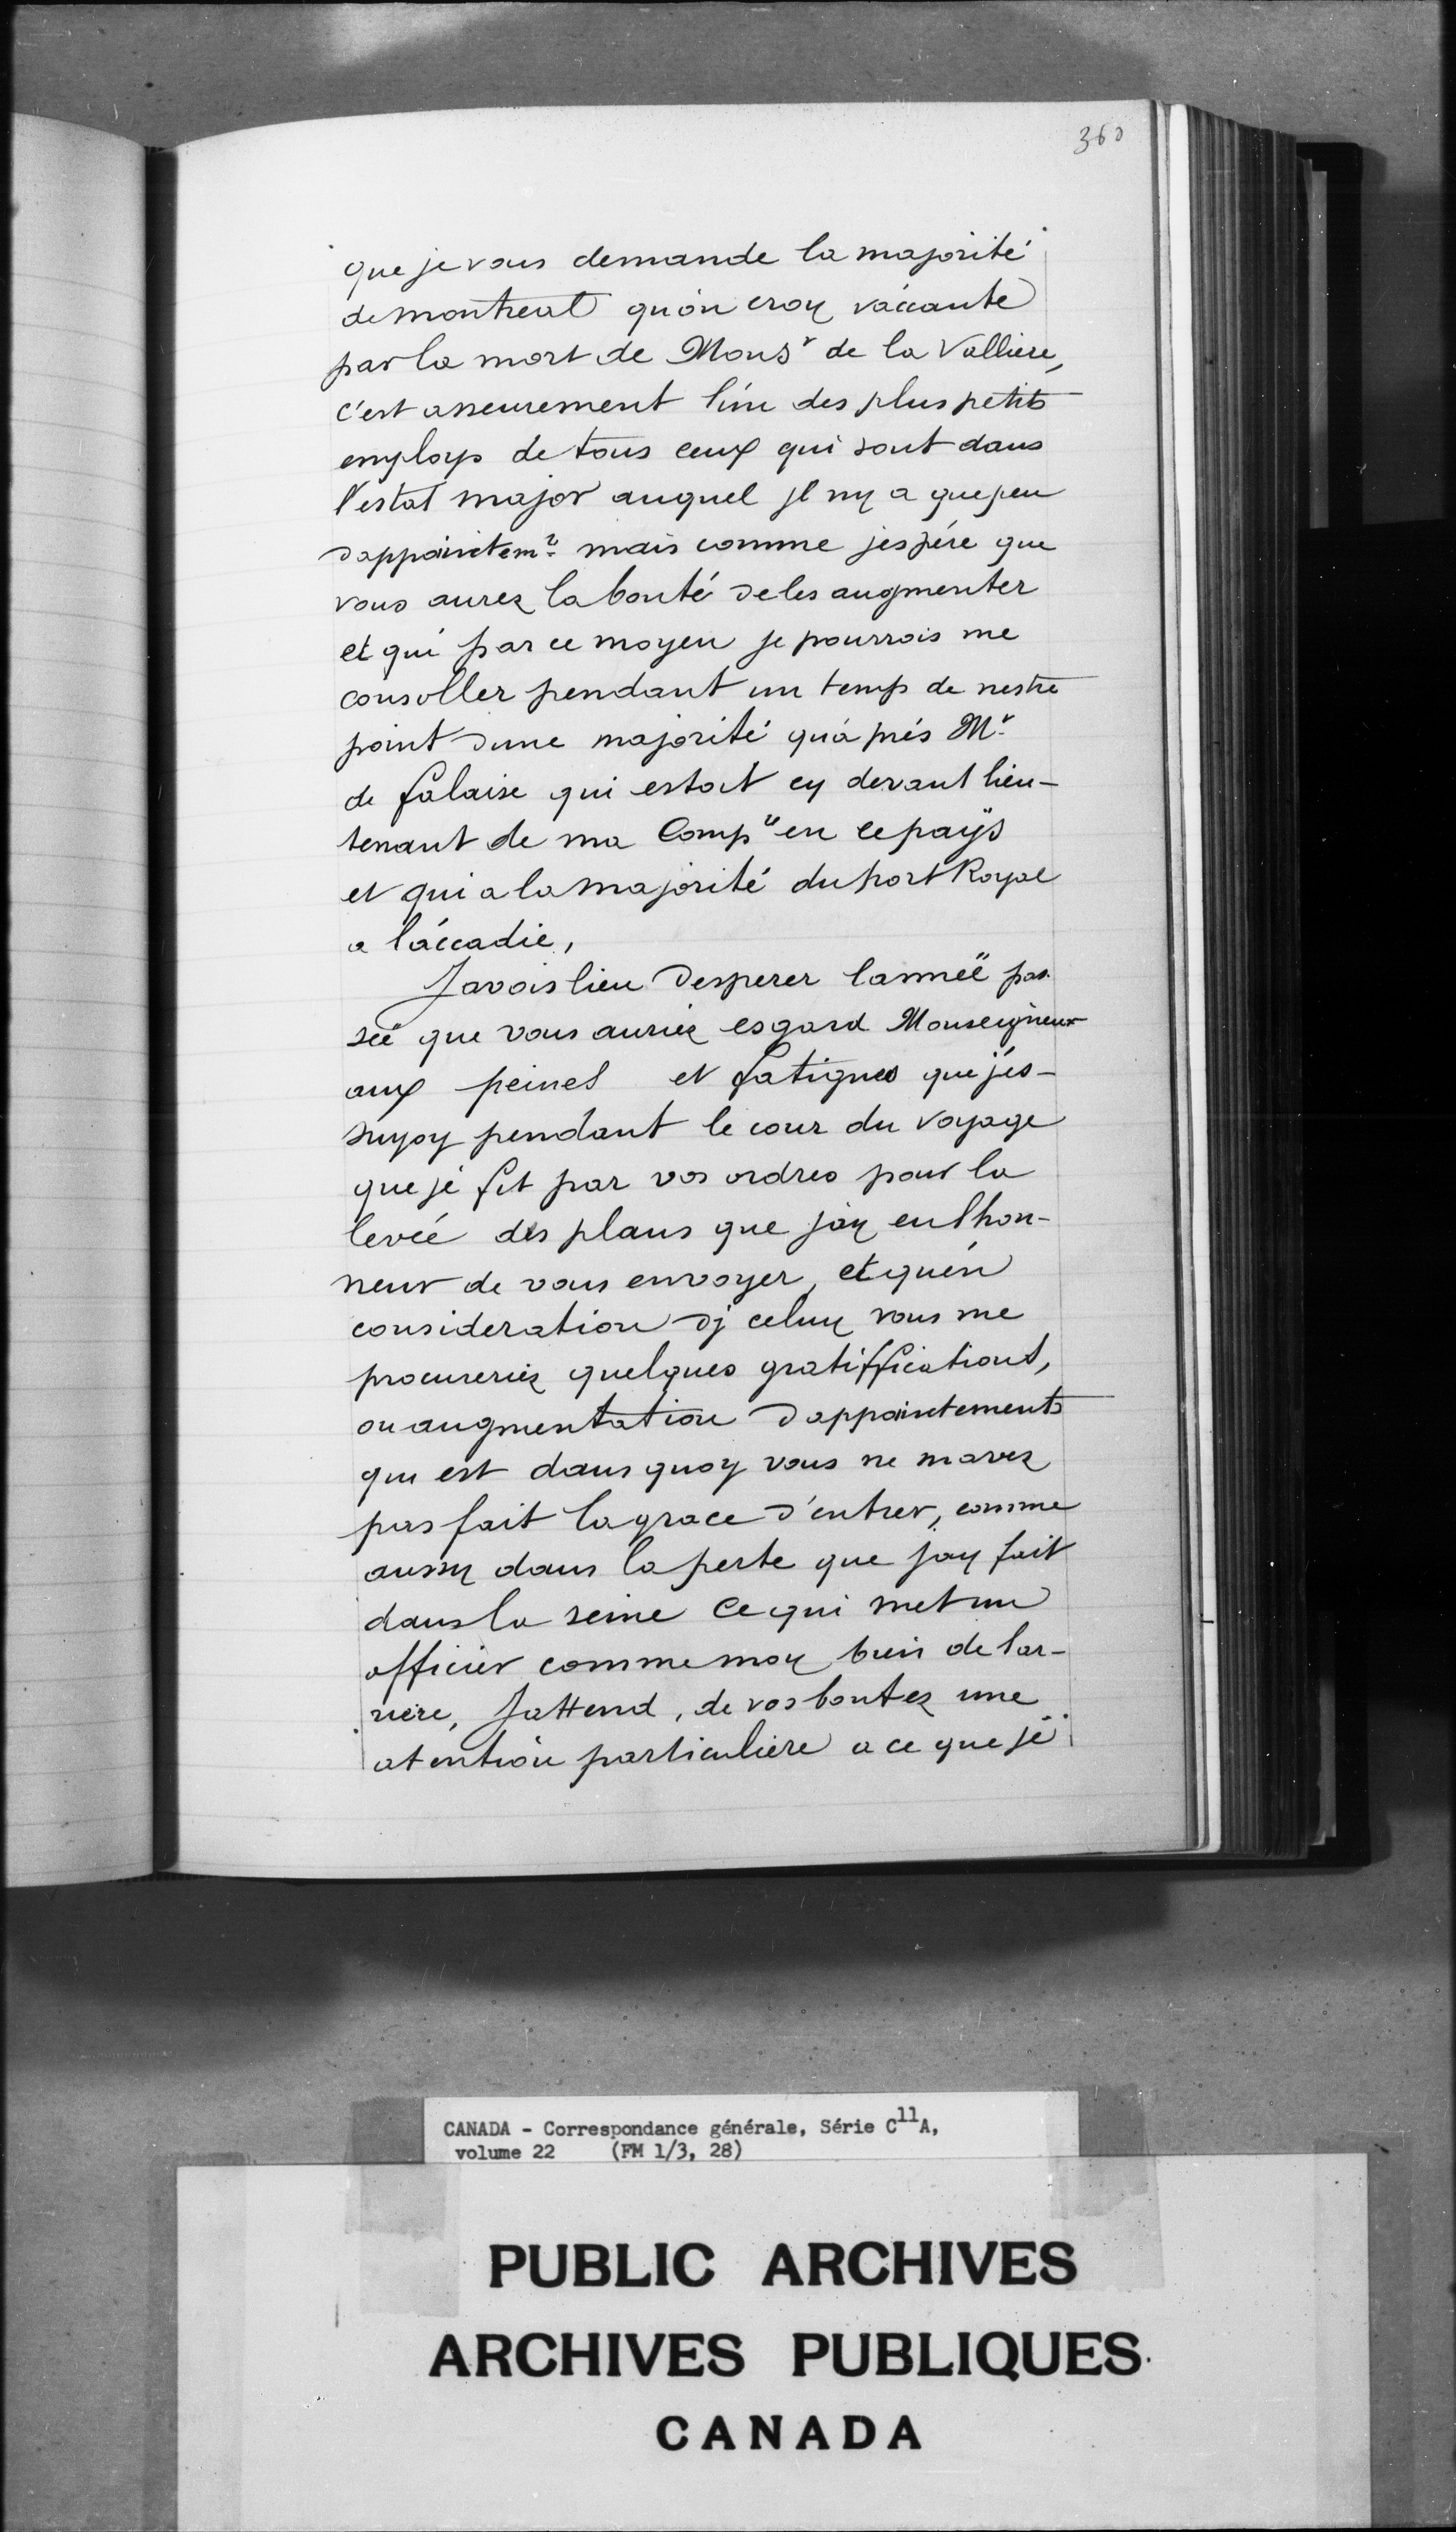 360
que je vous demande la majorité
de montreal qu'on croy vaccante
par la mort de Monsr de la Valliere,
c'est asseurement l'un des plus petits
employs de tous ceux qui sont dans
l'estat major auquel jl ny a que peu
dappointemts mais comme jespére que
vous aurez la bonté de les augmenter
et qui par ce moyen je pourrois me
consoller pendant un temps de nestre
point dune majorité qu'a prés Mr
de falaise qui estoit cy devant lieu-
tenant de ma Compie en ce païs
et qui a la majorité du port Royal
a l'accadie,
Javois lieu desperer lanneë pas-
seé que vous auriez esgard Monseigneur
aux peines et fatigues que j'es-
suyoy pendant le cour du voyage
que je fit par vos ordres pour la
leveé des plans que jay eu lhon-
neur de vous envoyer, et qu'en
consideration dj celuy vous me
procureriez quelques gratiffications,
ou augmentation dappointements
qui est dans quoy vous ne mavez
pas fait la grace d'entrer, comme
aussy dans la perte que jay fait
dans la seine ce qui met un
officier comme moy bien de lar-
riere, Jattend, de vos bontez une
atention particuliere a ce que je
CANADA - Correspondance générale, Série C11A,
volume 22 (FM 1/3, 28)
PUBLIC ARCHIVES
ARCHIVES PUBLIQUES
CANADA